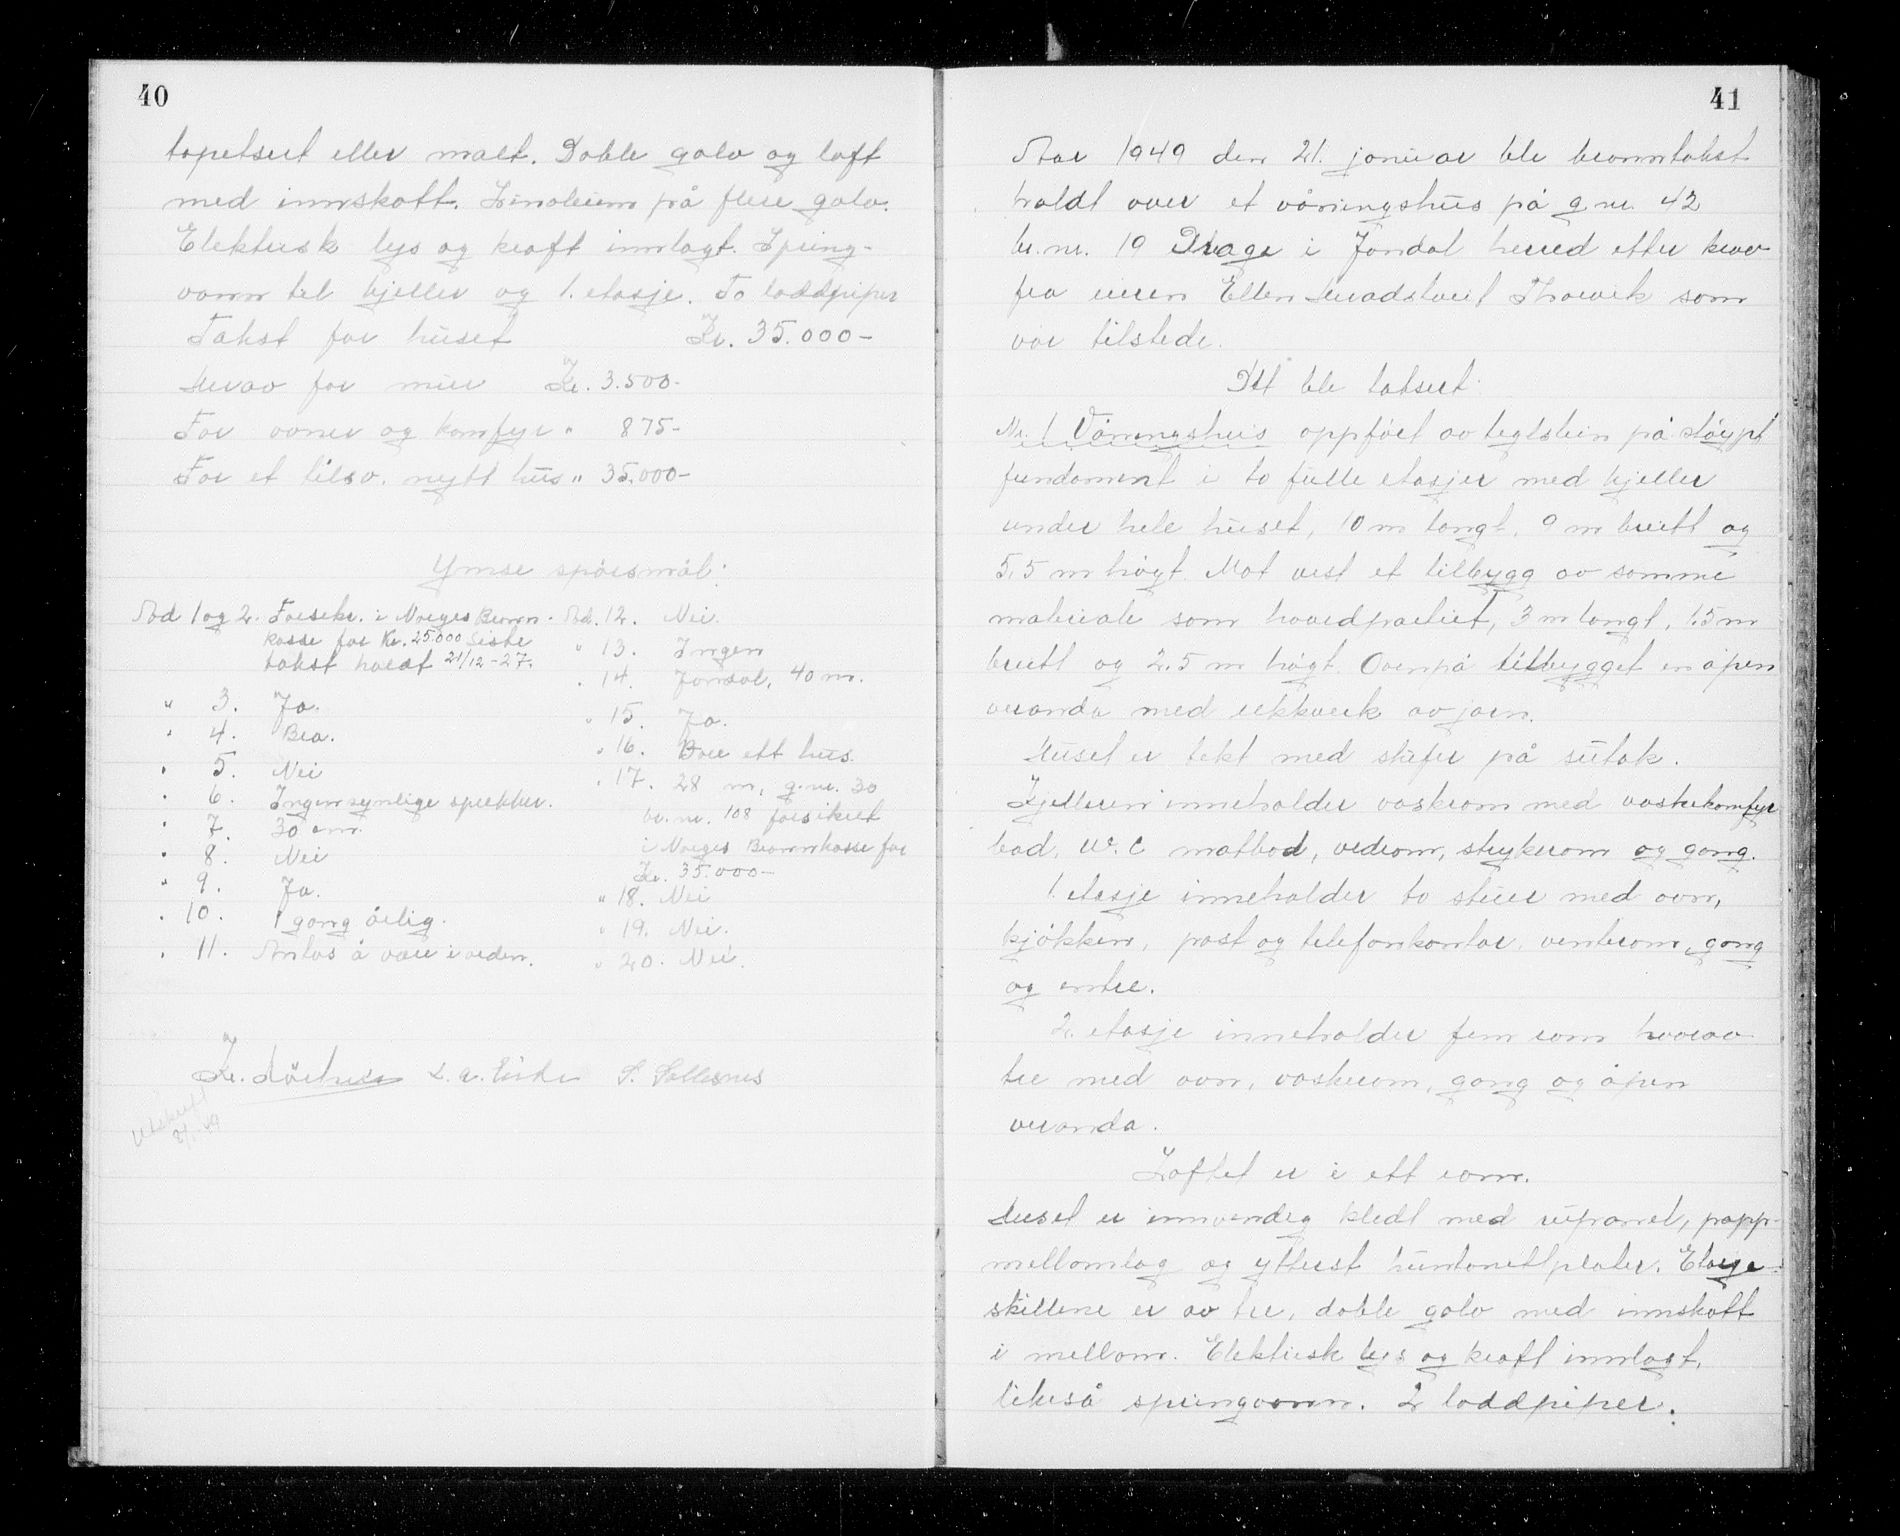 40
tapetsert eller malt. Doble golv og loft
med innskott. Linoleum på flere golv.
Elektrisk lys og kraft innlagt. Spring-
vann til kjeller og 1. etasje. To loddpiper
Takst for huset Kr. 35.000-
Herav for mur Kr. 3.500-
For ovner og komfyr " 875-
For et tilsv. nytt hus " 35.000-
Ymse spørsmål:
Ad 1 og 2. Forsikr. i Norges Brann-
kasse for Kr. 25.000 Siste
takst holdt 21/12-27.
" 3. Ja.
" 4. Bra.
" 5. Nei
" 6. Ingen synlige sprekker.
" 7. 30 cm.
" 8. Nei
" 9. Ja.
" 10. 1 gang årlig.
" 11. Antas å være i orden.
Ad. 12. Nei.
" 13. Ingen
" 14. Jondal, 40 m.
" 15. Ja.
" 16. Bare ett hus.
" 17. 28 m, g.nr. 30
br.nr. 108 forsikret
i Norges Brannkasse for
Kr. 35.000-
" 18. Nei
" 19. Nei.
" 20. Nei.
Kr. S. Sollesnes
Utskrift
41
Aar 1949 den 21. januar ble branntakst
holdt over et våningshus på g.nr. 42
br.nr. 19 Drage i Jondal herred etter krav
fra eieren Ellen Thorvik som
var tilstede.
Det ble taksert:
Nr. 1 Våningshus oppført av teglstein på støypt
fundament i to fulle etasjer med kjeller
under hele huset, 10 m langt, 9 m breitt og
5,5 m høgt. Mot vest et tilbygg av samme
materiale som hovedpartiet, 3 m langt, 1.5 m
breitt og 2.5 m høgt. Ovenpå tilbygget en åpen
veranda med rekkverk av jarn.
Huset er tekt med skifer på sutak.
Kjelleren inneholder vaskrom med vaskekomfyr
bad, W.C matbod, vedrom, strykerom og gang.
1. etasje inneholder to stuer med ovn,
kjøkken, post og telefonkontor, venterom, gang
og entre.
2. etasje inneholder fem rom hvorav
tre med ovn, vaskerom, gang og åpen
veranda.
Loftet er i ett rom.
Huset er innvendig kledt med rupanel, papp-
mellomlag og ytterst huntonettplater. Etasje-
skillene er av tre, doble golv med innskott
i mellom. Elektrisk lys og kraft innlagt,
likeså springvann. 2 loddpiper.